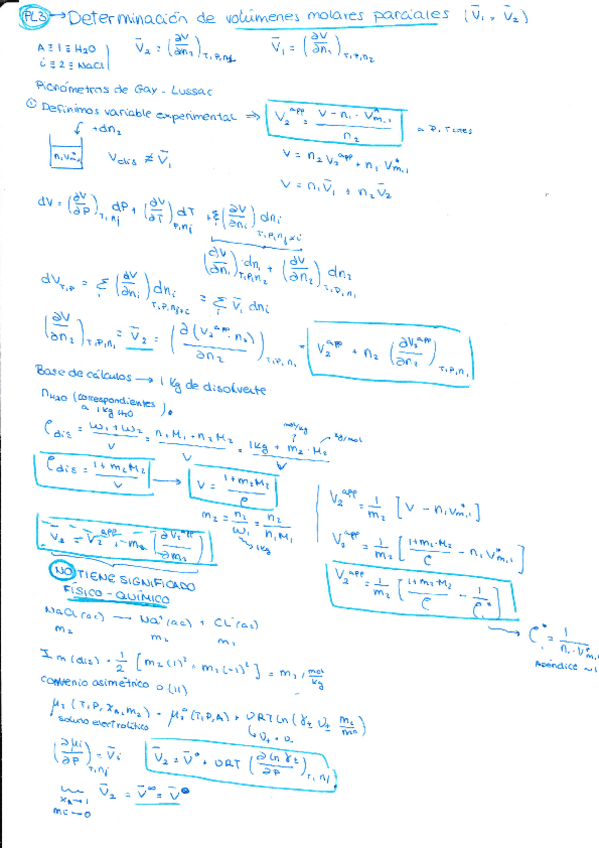 PL3 → Determinación de volúmenes molares parciales (V̄₁, V̄₂)
A ≡ 1 ≡ H₂O
i ≡ 2 ≡ NaCl
V̄₂ = (∂V/∂n₂)_T,P,n₁
V̄₁ = (∂V/∂n₁)_T,P,n₂
Picnómetros de Gay-Lussac
① Definimos variable experimental ⇒ V₂^app = (V - n₁ · V*m,1)/n₂
a P, T ctes
+dn₂
n₁V*m,1
Vdis ≠ V̄₁
V = n₂V₂^app + n₁V*m,1
V = n₁V̄₁ + n₂V̄₂
dV = (∂V/∂P)_T,nj dP + (∂V/∂T)_P,nj dT + Σ(∂V/∂ni)_T,P,nj≠i dni
(∂V/∂n₁)_T,P,n₂ · dn₁ + (∂V/∂n₂)_T,P,n₁ dn₂
dV_T,P = Σi (∂V/∂ni)_T,P,nj≠i dni = Σi V̄i dni
(∂V/∂n₂)_T,P,n₁ = V̄₂ = (∂(V₂^app · n₂)/∂n₂)_T,P,n₁ = V₂^app + n₂ (∂V₂^app/∂n₂)_T,P,n₁
Base de cálculos → 1 Kg de disolvente
nH₂O (correspondientes
a 1Kg H₂O).
ρdis = (ω₁ + ω₂)/V = (n₁M₁ + n₂M₂)/V = (1Kg + m₂ · M₂)/V
mol/kg
kg/mol
ρdis = (1 + m₂M₂)/V → V = (1 + m₂M₂)/ρ
m₂ = n₂/ω₁ = n₂/(n₁M₁)
1Kg
V₂^app = 1/m₂ [V - n₁V*m,1]
V₂^app = 1/m₂ [(1 + m₂·M₂)/ρ - n₁V*m,1]
V₂^app = 1/m₂ [(1 + m₂·M₂)/ρ - 1/ρ₁*]
ρ₁* = 1/(n₁ · V*m,1)
Apéndice ~1
V̄₂ = V₂^app + m₂ (∂V₂^app/∂m₂)
NO TIENE SIGNIFICADO
FÍSICO-QUÍMICO
NaCl (ac) → Na⁺(ac) + Cl⁻(ac)
m₂ m₂ m₂
Im (dis) = 1/2 [m₂(1)² + m₂(-1)²] = m₂ / mol/kg
convenio asimétrico o (II)
μ₂ (T, P, xA, m₂) = μ₂° (T, P, A) + νRT ln (γ± ν± m₂/m°)
soluto electrolítico
(∂μi/∂P)_T,nj = V̄i
V̄₂ = V̄° + νRT (∂ ln γ±/∂P)_T,nj
lim V̄₂ = V̄^∞ = V̄°
xA→1
mi→0